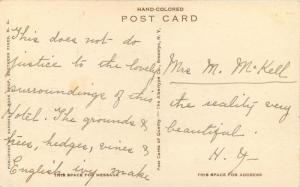 HAND-COLORED
POST CARD
This does not do
justice to the lovely
surroundings of this
Hotel. The grounds &
trees, hedges, vines &
English ivy make
Mrs M. McKell
the reality very
beautiful.
H. Y.
THIS SPACE FOR MESSAGE
THIS SPACE FOR ADDRESS
Post Cards of Quality. — The Albertype Co., Brooklyn, N. Y.